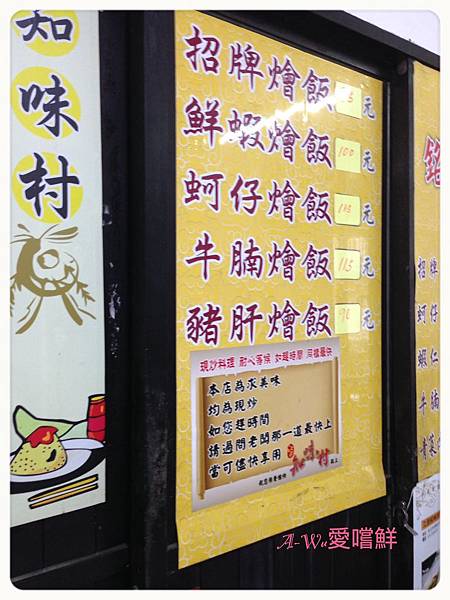 知味村
招牌燴飯 元
鮮蝦燴飯 100元
蚵仔燴飯 元
牛腩燴飯 115元
豬肝燴飯 元
現炒料理 耐心等候 如趕時間 同樣最快
本店為求美味
均為現炒
如您趕時間
請過問老闆那一道最快上
當可儘快享用
知味村
招牌
蚵仔
蝦仁
牛腩
A-Wu愛嚐鮮